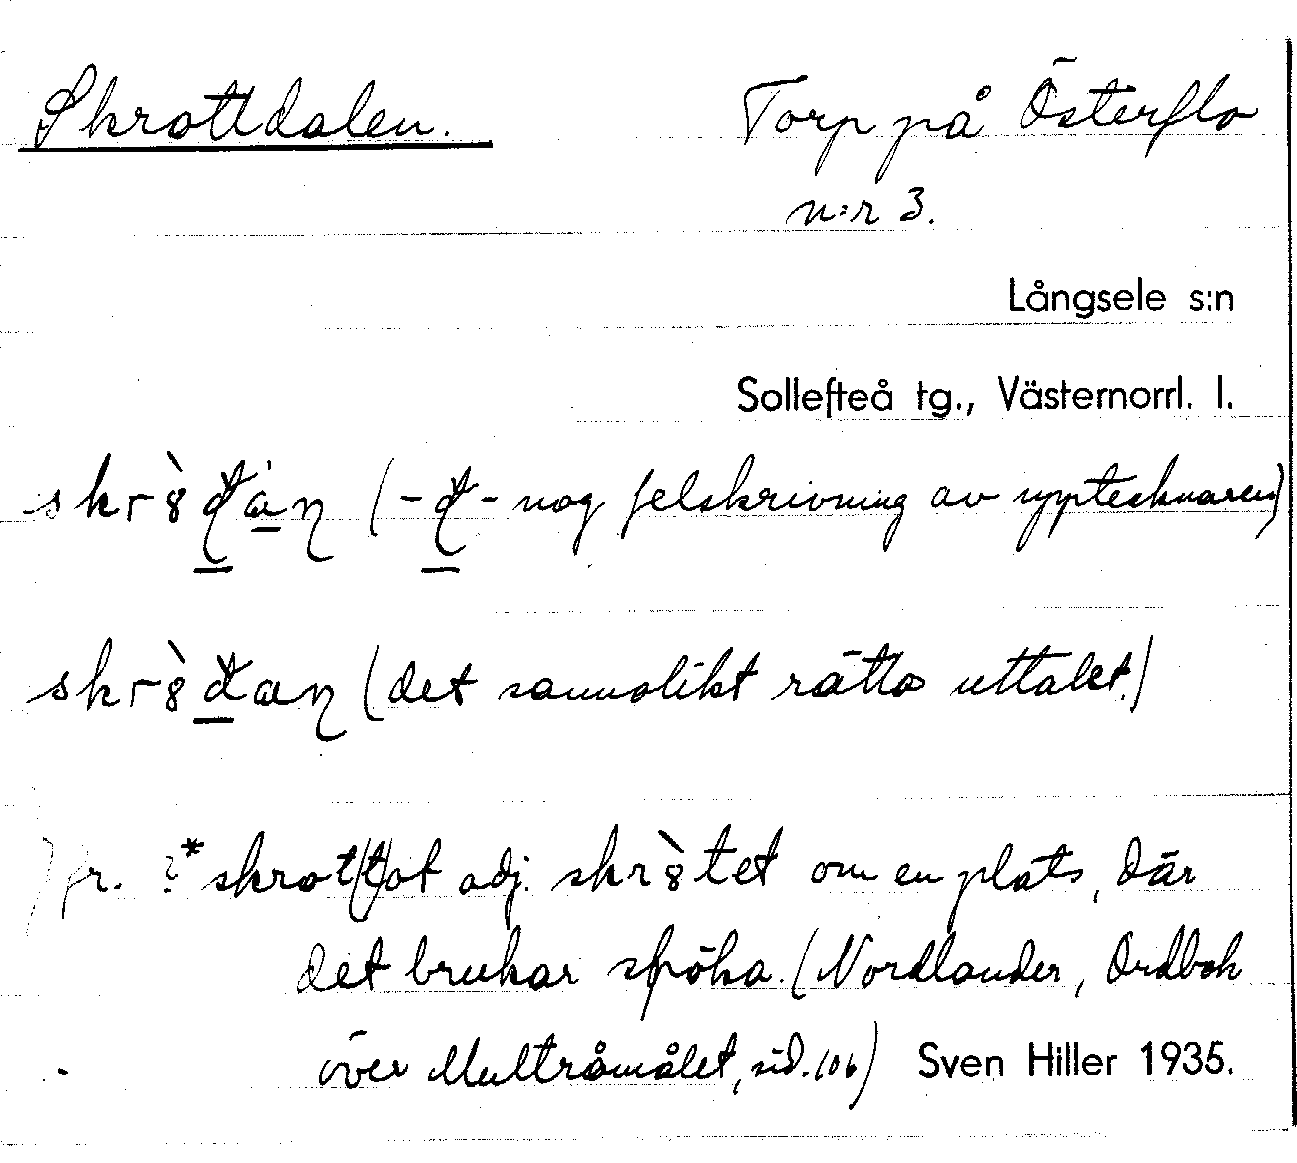 Skrottdalen. Torp på Österflo
n:r 3.
Långsele s:n
Sollefteå tg., Västernorrl. l.
skr8̀đàn (-đ- nog felskrivning av upptecknaren)
skr8̀đan (det sannolikt rätta uttalet.)
Jfr. ?*skrot(t)ot adj. skr8̀tet om en plats, där
det brukar spöka. (Nordlander, Ordbok
över Multråmålet, sid. 106) Sven Hiller 1935.